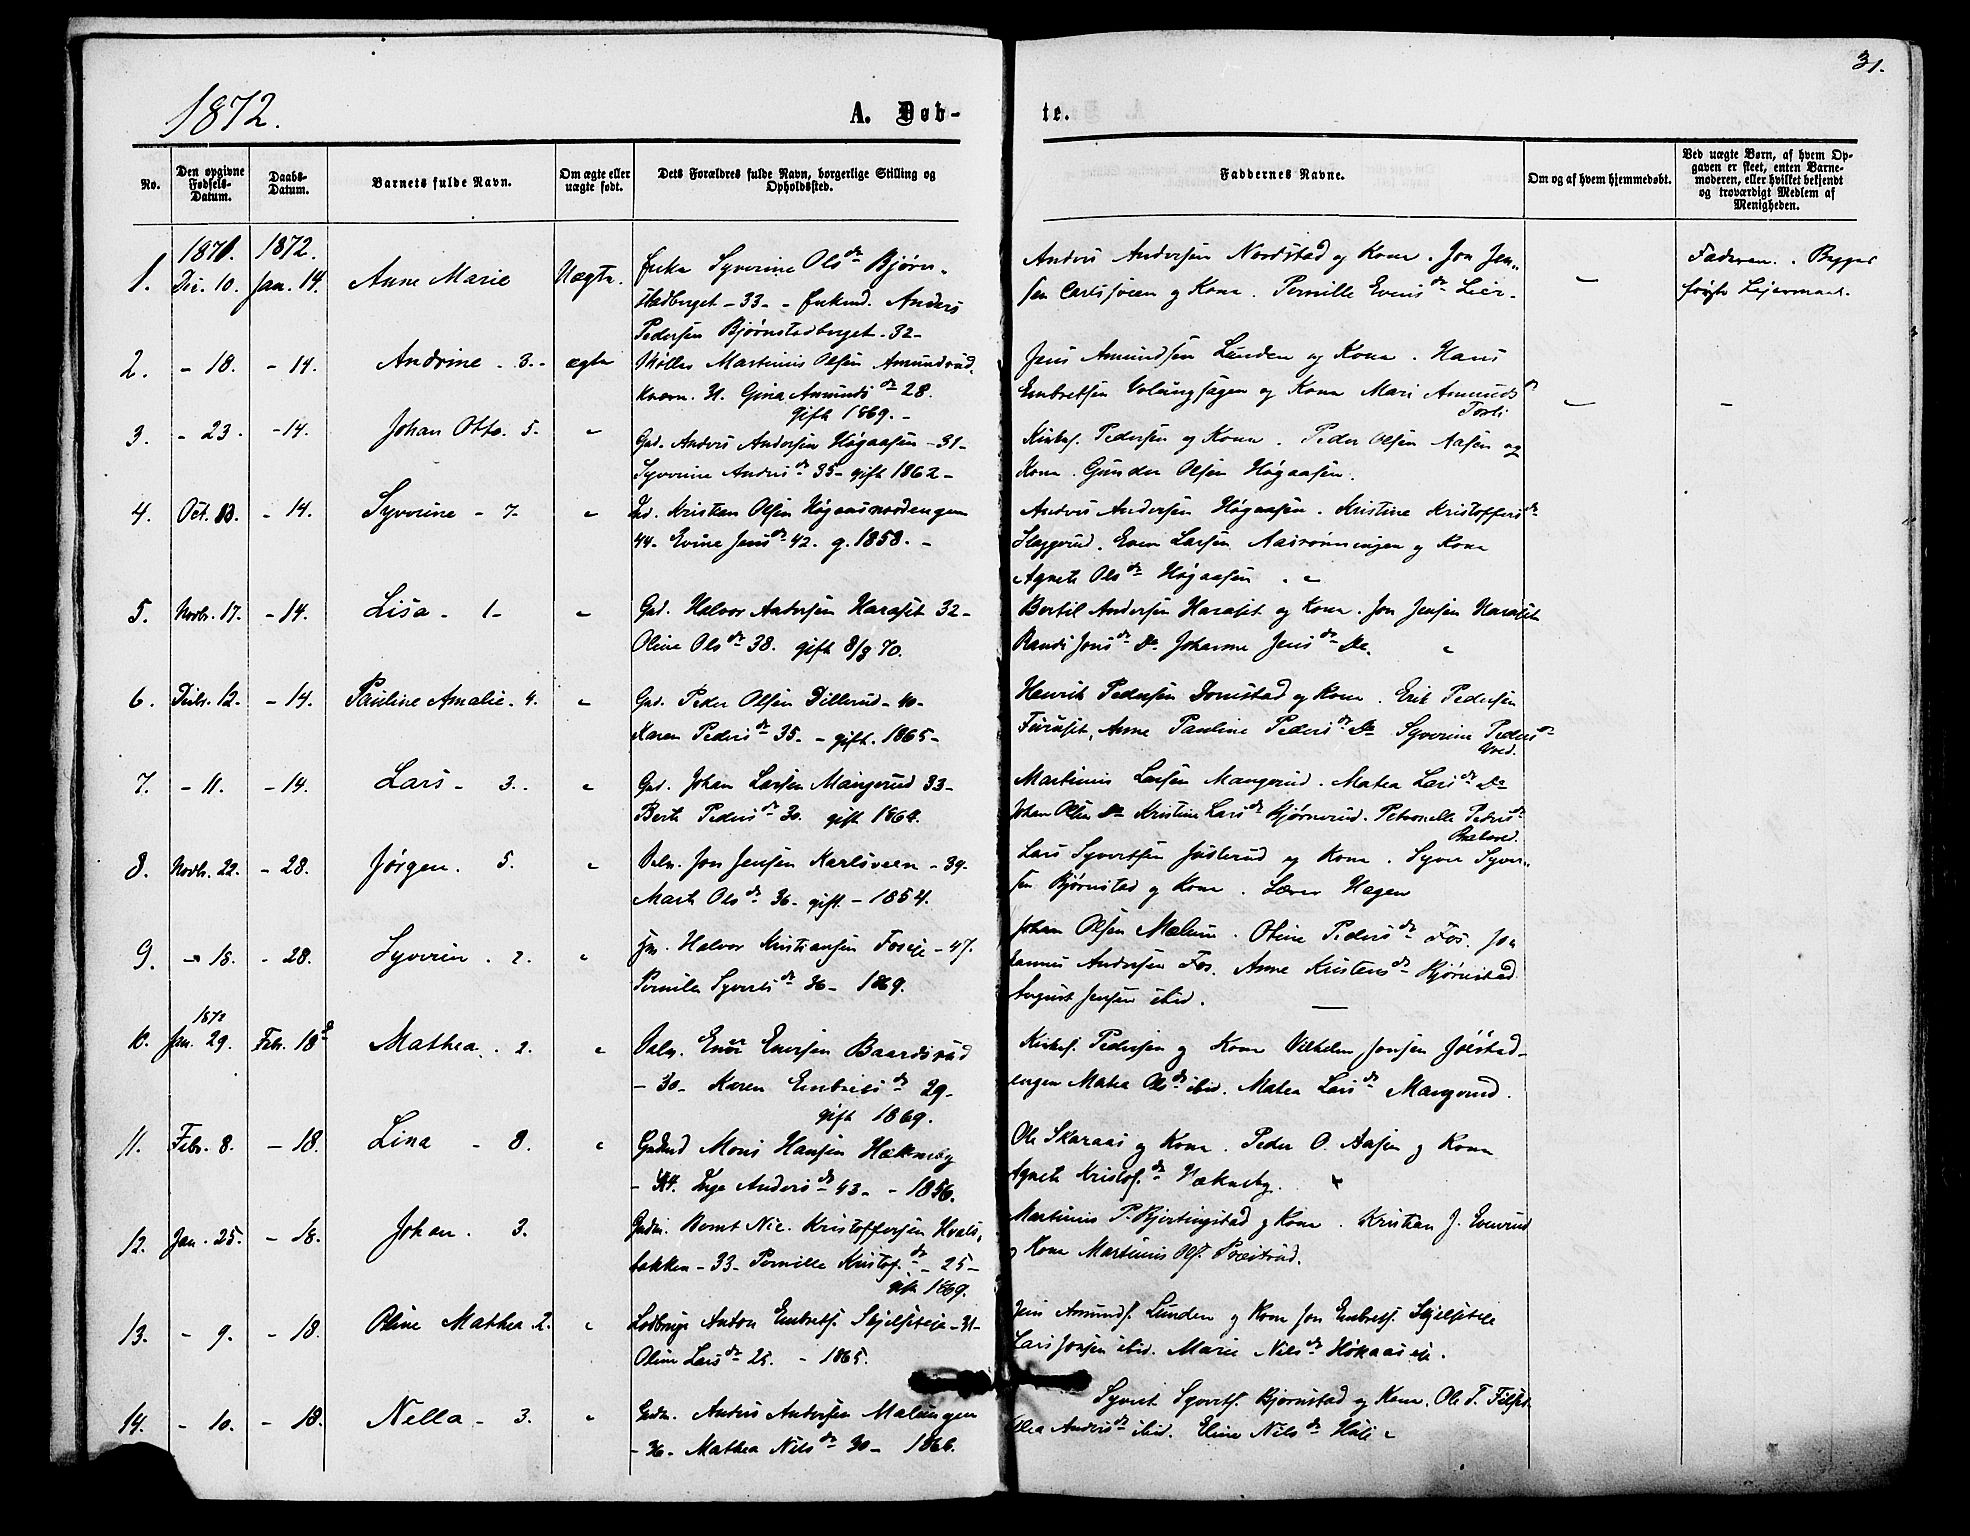 31.
1872.
A. Døb-
te.
No.
Den opgivne Fødsels-Datum.
Daabs-Datum.
Barnets fulde Navn.
Om ægte eller uægte født.
Dets Forældres fulde Navn, borgerlige Stilling og Opholdssted.
Faddernes Navne.
Om og af hvem hjemmedøbt.
Ved uægte Børn, af hvem Opgaven er skeet, enten Barnemoderen, eller hvilket bekjendt og troværdigt Medlem af Menigheden.
1871. 1872.
1. Dec. 10. Jan. 14. Anne Marie Uægte. Enke Syverine Olsdr Bjørn-
stadberget - 33 - Enkemd. Anders
Pedersen Bjørnstadberget - 32 -
Anders Andersen Nordstad og Kone. Jon Jen-
sen Carlsveen og Kone. Pernille Evensdr Lier.
-
Faderen. Begges
første Lejermaal.
2. - 18. - 14. Andrine - 3. - ægte Møller Martinius Olsen Amundrud
Kværn. 31. Gina Amundsdr 28.
gift 1869. -
Jens Amundsen Lunden og Kone. Hans
Embretsen Volungshagen og Kone Mari Amundsdr
- -
3. - 23. - 14. Johan Otto. 5. " Gbd. Anders Andersen Høgaasen - 31 -
Syverine Andersdr 35 - gift 1862 -
Kirkes. Pedersen og Kone. Peder Olsen Aasen og
Kone. Gunder Olsen Høgaasen.
4. Oct. 13. - 14. Syverine - 7. " Kristian Olsen Høgaasnordengen
44 - Evine Jensdr 42. g. 1858. -
Anders Andersen Høgaasen. Kristine Kristoffersdr
Haggerud. Even Larsen Aasrønningen og Kone
Agnete Olsdr Høgaasen. "
5. Novbr. 17. - 14. Lisa - 1 - " Gbd. Halvor Andersen Haraset 32 -
Oline Olsdr 38. gift 8/8 70.
Bertil Andersen Haraset og Kone. Jon Jensen Haraset
Randi Jonsdr Do. Johanne Jensdr Do. "
6. Decbr. 12. - 14. Pauline Amalie. 4. " Gbd. Peder Olsen Dillerud - 40 -
Karen Pedersdr 35 - - gift. 1865 -
Henrik Pedersen Donstad og Kone. Erik Pedersen
Furuset, Anne Pauline Pedersdr Do Syverine Pedersdr
7. - 11. - 14. Lars - 3. " Gbd. Johan Larsen Mangerud 33 -
Berte Pedersdr 30. gift 1864.
Martinius Larsen Mangerud. Matea Larsdr Do
Johan Olsen Do Kristine Larsdr Bjørnerud. Petronelle Pedersdr
8. Novbr. 22. - 28. Jørgen. 5. " Jon Jensen Karlsveen - 39.
Marte Olsdr 36. gift - 1854.
Lars Syvertsen Justerud og Kone. Syver Syver-
sen Bjørnstad og Kone. Lærer Hagen
9. - 18. - 28. Syverin. 2. " Hm. Halvor Kristiansen Foseie - 47.
Pernille Syvertsdr 36 - 1869.
Johan Olsen Mælum. Oline Pedersdr Fos. Jo
hannes Andersen Fos. Anne Kristensdr Bjørnstad
August Jensen ibid. -
1872
10. Jan. 29. Febr. 18de Mathea. 2. " Enor Enersen Baardsrud
- 30 - Karen Embretsdr 29 -
gift 1869.
Kirkes. Pedersen og Kone Vilhelm Jonsen Joistad-
engen Matea Olsdr ibid. Matea Larsdr Mangerud.
11. Febr. 8. - 18. Lina - 8. " Gaardmd Mons Hansen Hækneby
- 44. Inge Andersdr 43 - - 1856.
Ole Skaraas og Kone. Peder O. Aasen og Kone
Agnete Kristof.dr Hækneby.
12. Jan. 25. - 18. Johan. 3. Gaardm. Bernt Nic. Kristoffersen Hvals-
bakken - 33 - Pernille Kristof.dr - 25 -
gift 1869.
Martinius P. Bjertingstad og Kone. Kristian J. Evenrud
og Kone Martinius Ols. Præstrud.
13. - 9. - 18. Oline Mathea. 2. " Lodbruge Anton Embrets. Skjelseteie - 31 -
Oline Larsdr 25. - 1865.
Jens Amunds. Lunden og Kone Jon Embrets. Skjelseteie
Lars Jonsen ibid. Marie Nilsdr Høkaaseie.
14. - 10. - 18. Nella - 3. " Gaardm. Anders Andersen Malungen
- 36 - Mathea Nilsdr 30 - 1866.
Syvert Syverts. Bjørnstad og Kone. Ole T. Filset
Olea Andersdr ibid. Eline Nilsdr Holi -